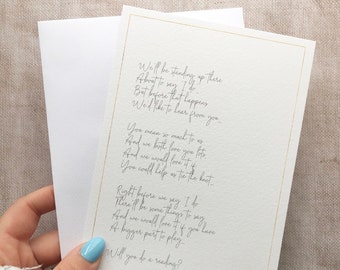 We'll be standing up there
About to say, "I do"
But before that happens
We'd like to hear from you.
You mean so much to us
And we both love you lots
And we would love it if
You would help us tie the knot..
Right before we say I do
There'll be some things to say
And we would love it if you have
A bigger part to play..
Will you do a reading?